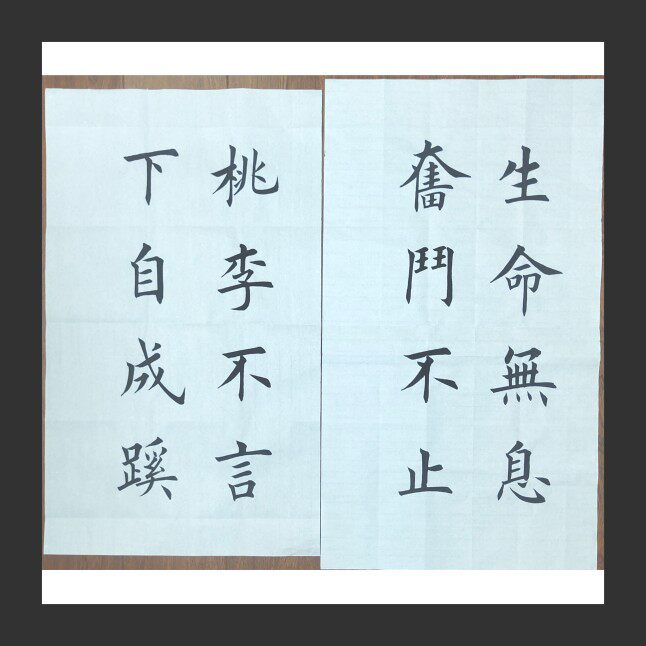 生命無息
奮鬥不止
桃李不言
下自成蹊